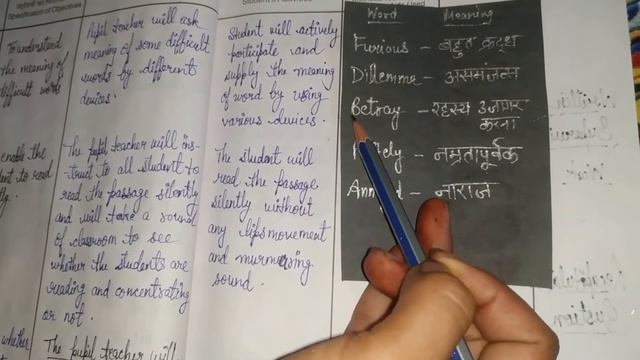 Specification of Objectives
To understand
the meaning of
difficult words
Pupil teacher will ask
meaning of some difficult
words by different
devices.
Student will actively
participate and
supply the meaning
of word by using
various devices.
Word Meaning
Furious - बहुत क्रुद्ध
Dillemma - असमंजस
Betray - रहस्य उजागर
करना
नम्रतापूर्वक
नाराज
enable the
to read
The pupil teacher will ins-
truct to all student to
read the passage silently
and will take a round
of classroom to see
whether the students are
reading and concentrating
or not.
The student will
read the passage
silently without
any lips movement
and murmuring
sound.
whether
The pupil teacher will